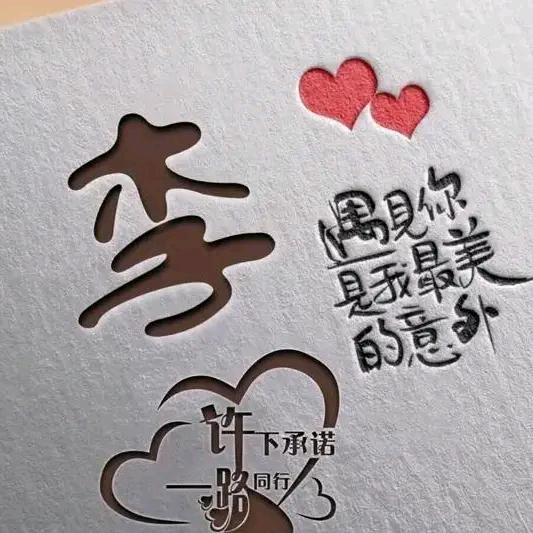 李
遇见你
是我最美
的意外
许下承诺
一路同行